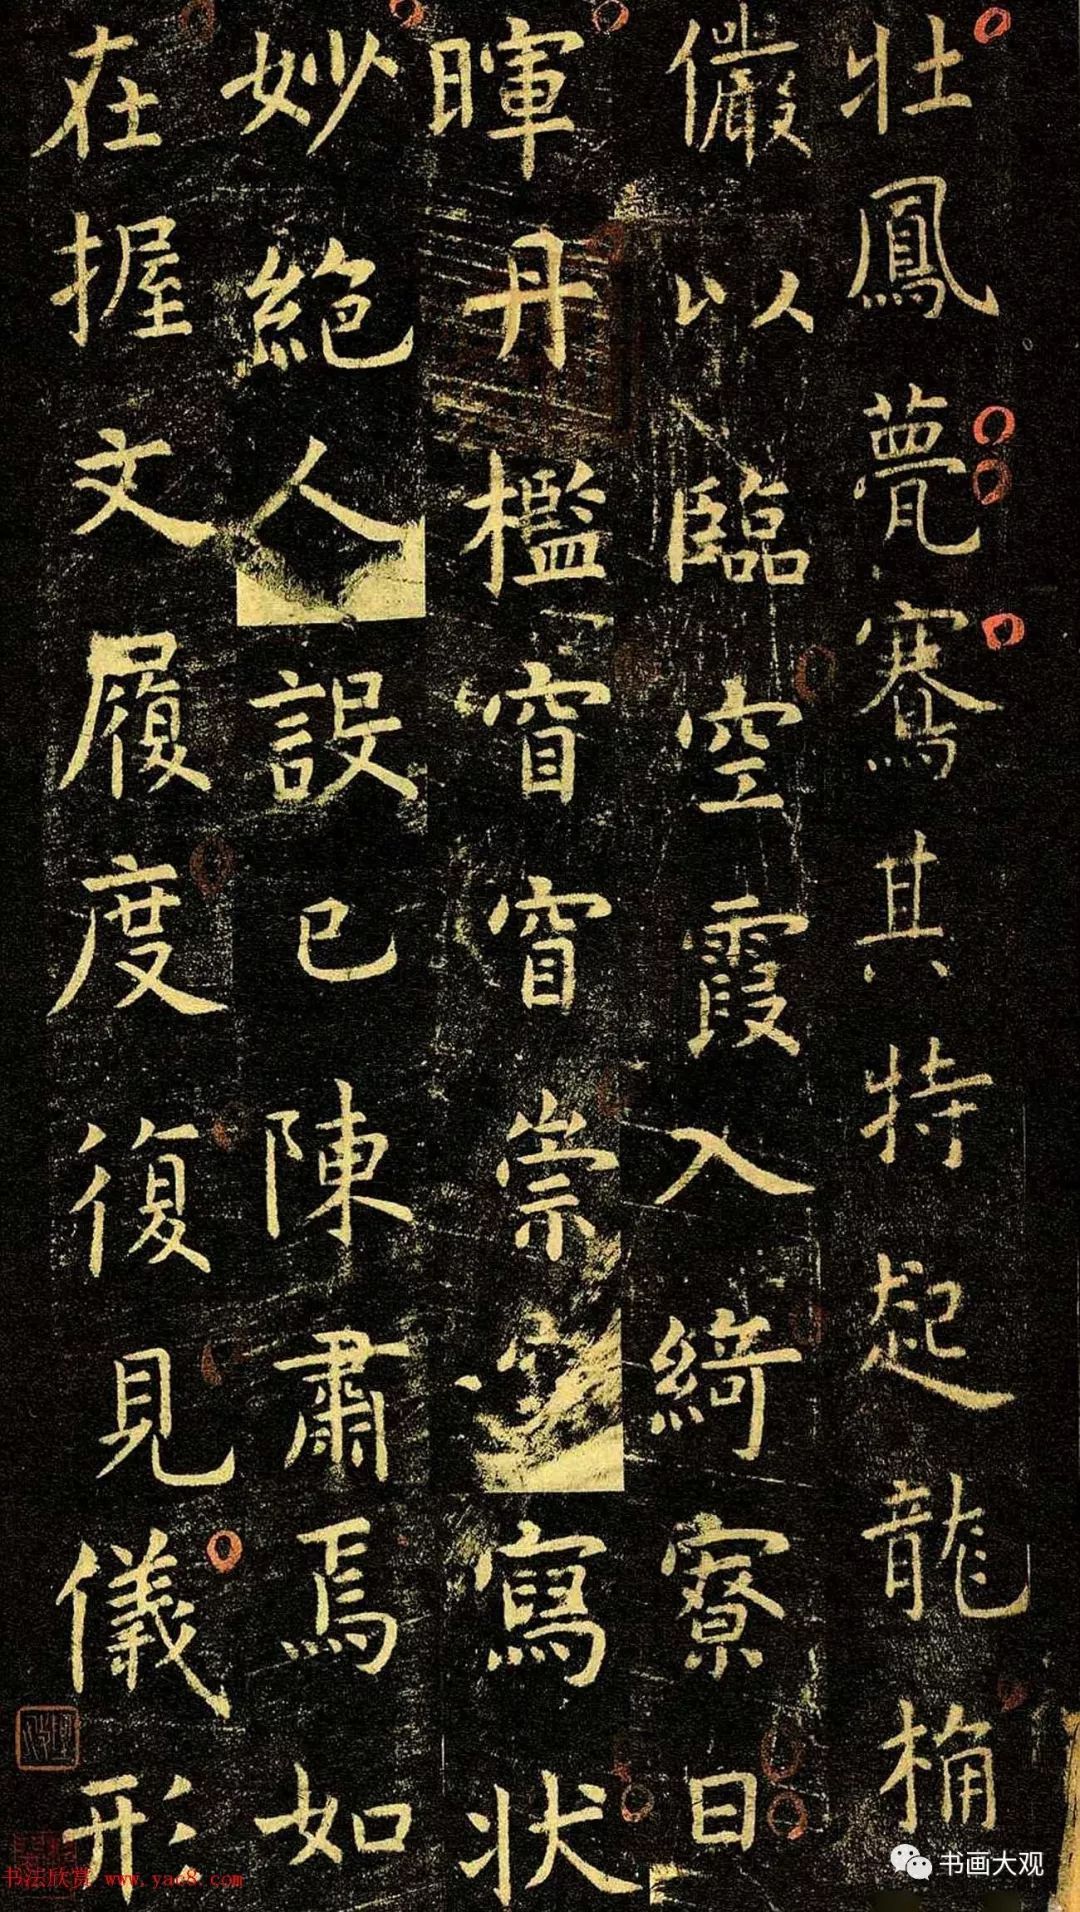 壯鳳甍鶱其特起龍桷
儼以臨空霞入綺寮日
暉丹檻窅窅崇寫狀
妙絕人設已陳肅焉如
在握文履度復見儀形
书法欣赏 www.yac8.com
书画大观